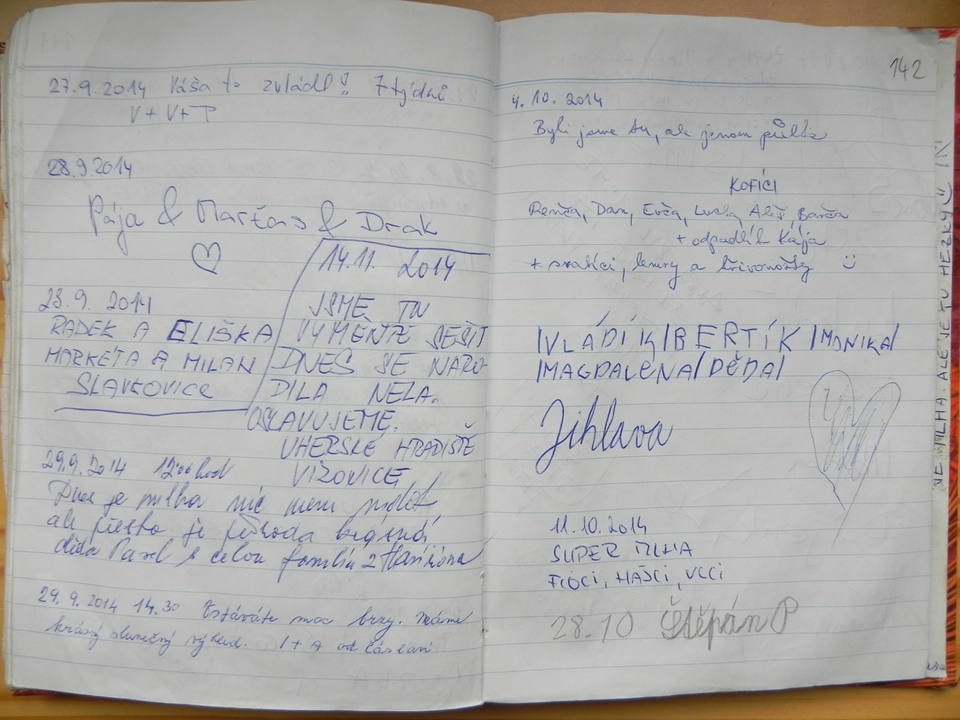 27.9.2014 Váša to zvládl! 7 týdnů
V+V+P
28.9.2014
Pája & Maržas & Drak
14.11. 2014
JSME TU
VYMĚNTE SEŠIT
DNES SE NARO-
DILA NELA.
OSLAVUJEME.
UHERSKÉ HRADIŠTĚ
VIZOVICE
28.9. 2014
RADEK A ELIŠKA
MARKÉTA A MILAN
SLAVKOVICE
29.9.2014 12:00 hod
Dnes je mlha nic není vidět
ale přesto je příroda krásná
děda Pavel s celou familií z
29.9.2014 14.30 Vstáváte moc brzy. Máme
krásný slunečný výhled. I + A od Čáslavi
142
4.10.2014
Byli jsme tu, ale jenom půlka
KOFÍCI
Renča, Dan, Evča, Lucka, Aleš, Barča
+ odpadlík Kája
+ a křivonožky
/VLÁDÍK/BERTÍK/MONIKA/
/MAGDALENA/DĚDA/
Jihlava
11.10.2014
SUPER MLHA
FIOCI, HAJCI, VLCI
28.10 Štěpán P
JE MLHA. ALE JE TU HEZKY